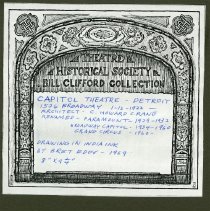 THEATRE
HISTORICAL SOCIETY
BILL CLIFFORD COLLECTION
CAPITOL THEATRE - DETROIT
1526 BROADWAY 1-12-1922
ARCHITECT C. HOWARD CRANE
RENAMED - PARAMOUNT - 1929-1932
BROADWAY CAPITOL - 1934-1960
GRAND CIRCUS - 1960-
DRAWING IN INDIA INK
BY BRET EDDY - 1969